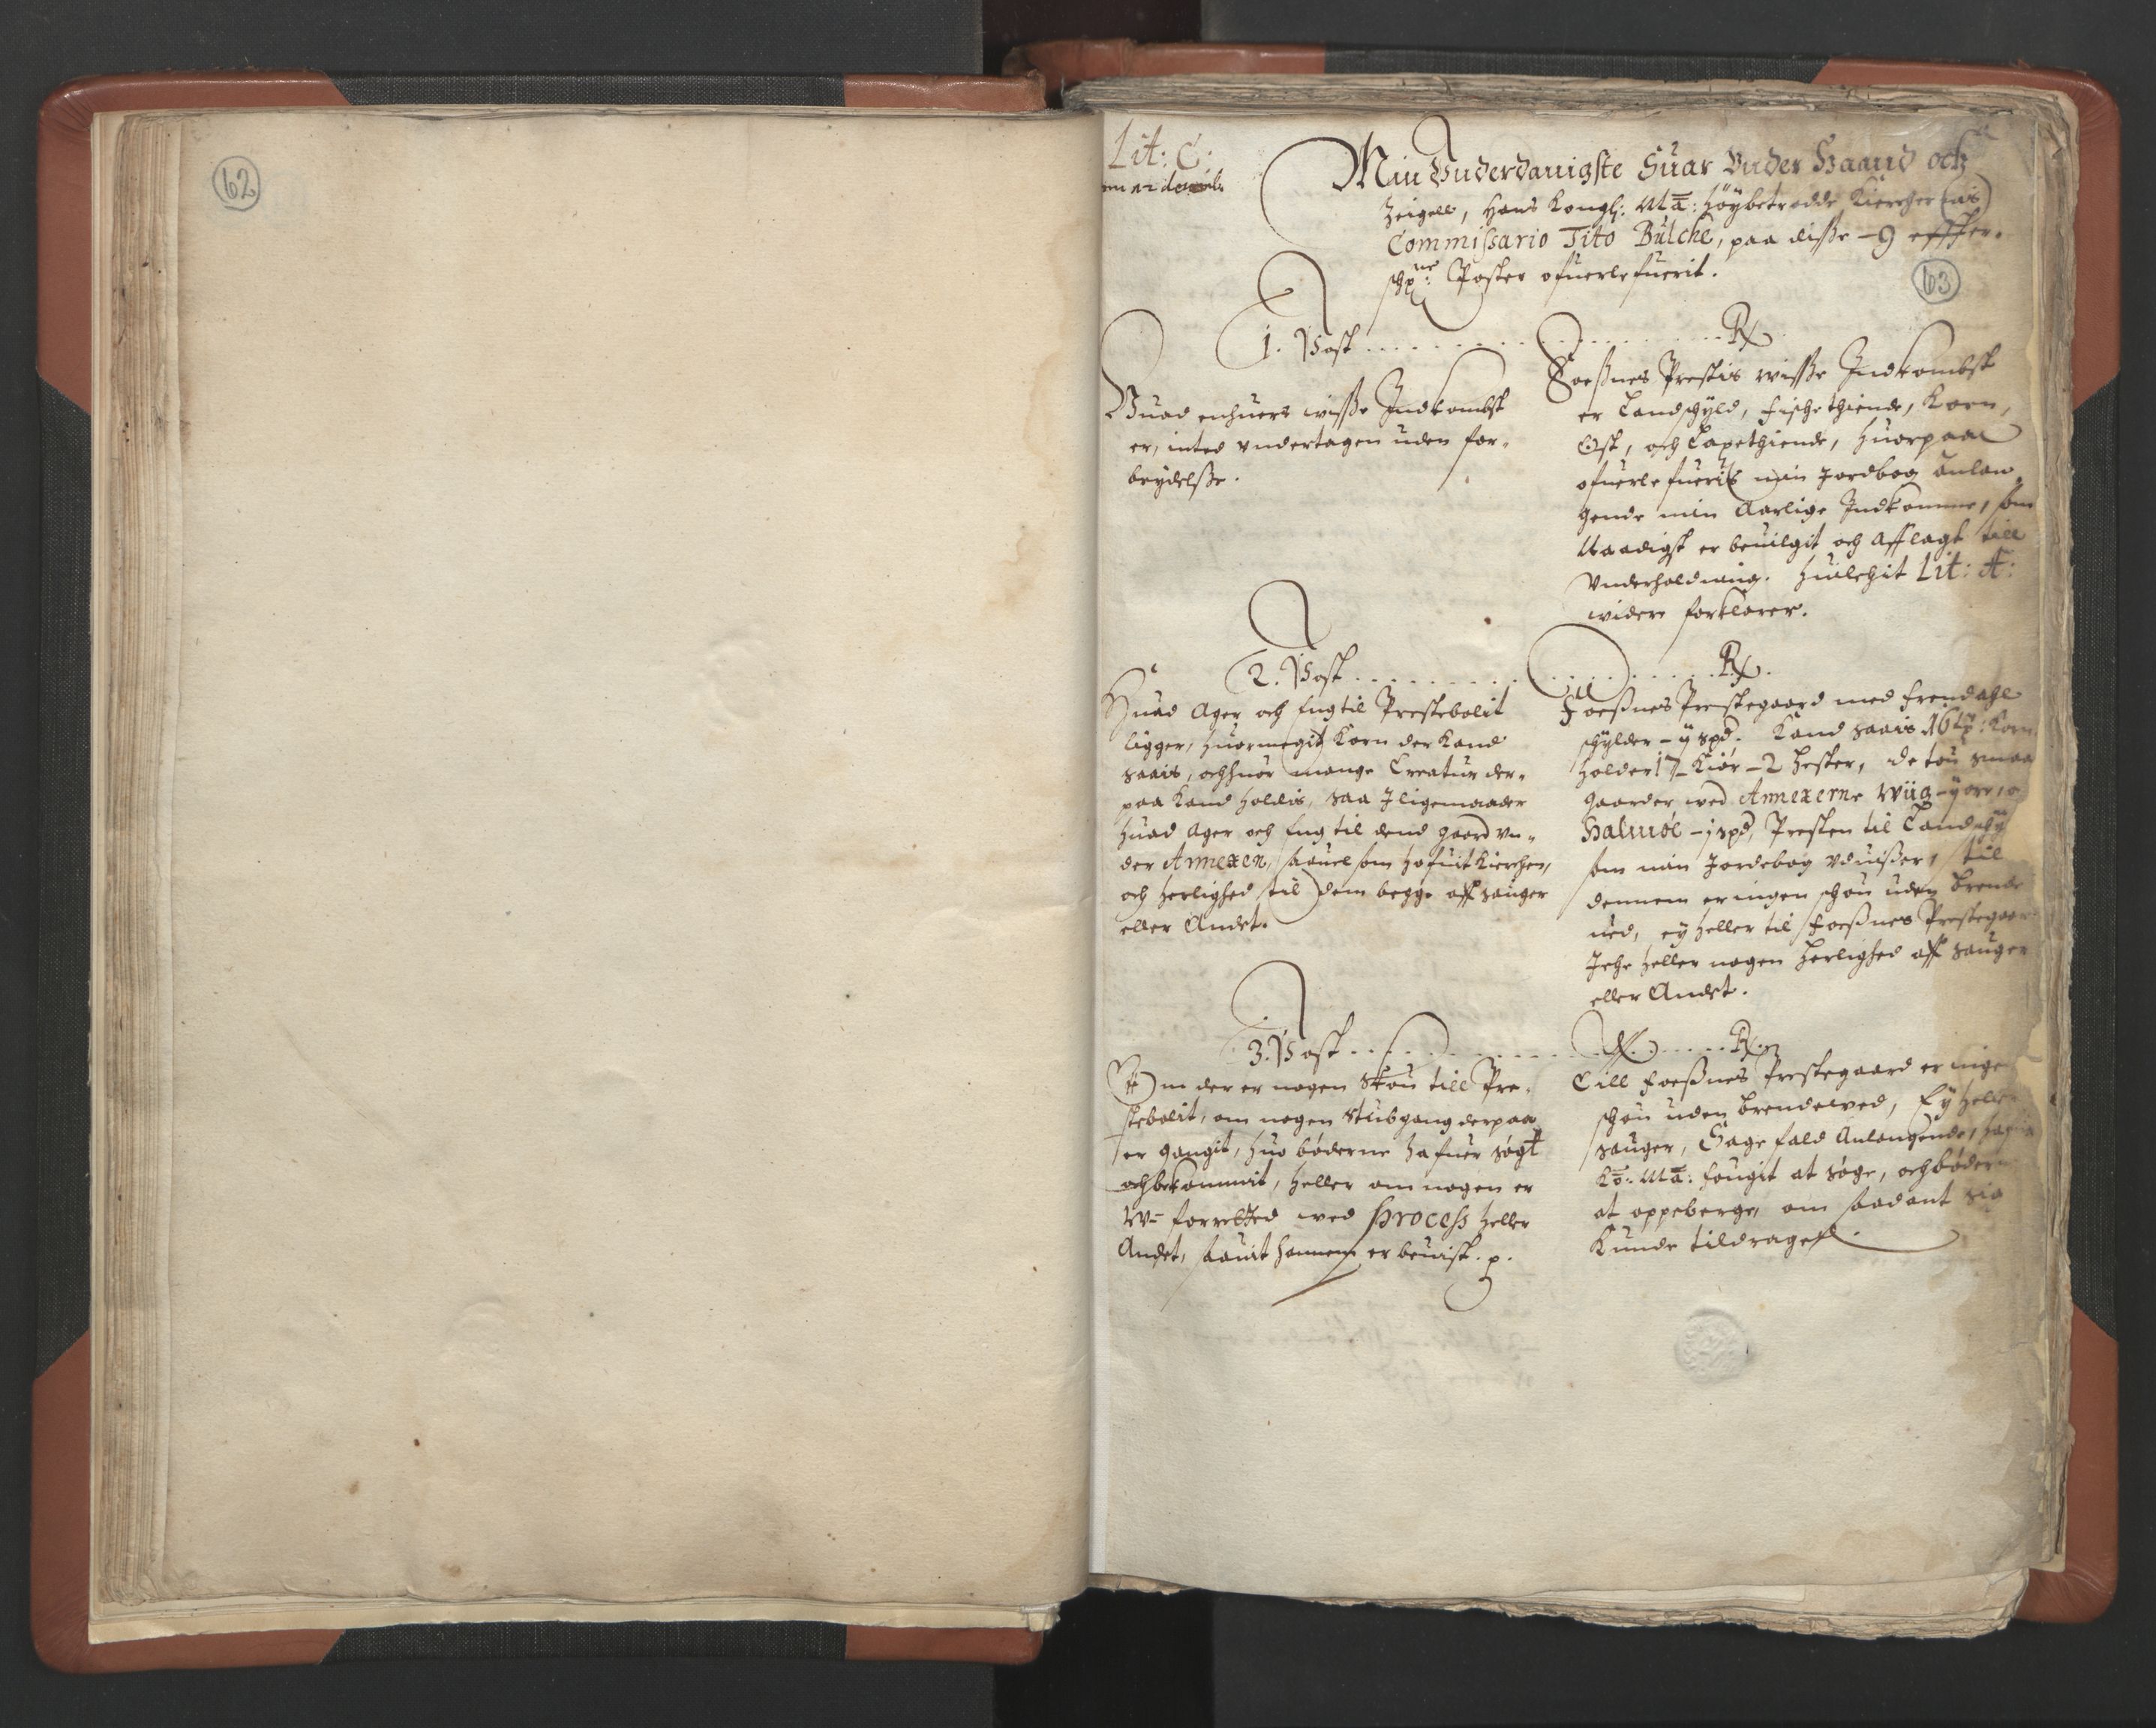 62
Lit: C.
Min Vnderdanigste Suar Vnder Haand och
Zeigell, Hans Kongl: Ma: Höybetrodde Kircher
Commissario Tito Bülche, paa disse -9 effter-
Poster ofuerlefuerit.
63
1. Post
Huad enhuers wisse Indkombst
er, inted vndertagen uden for-
brydelsse.
R
Foessnes Prestis wisse Indkombst
er Landschyld, fischethiende, Korn,
Ost, och Lapethiende, huorpaa
ofuerlefueris min Jordbog Anlan-
gende min Aarlige Indkomme, som
Naadigst er beuilgit och Afflagt till
Vnderholdning. huilchit Lit: A:
widere forklarer.
2. Post
Huad Ager och Eng til Prestebolit
ligger, huormegit Korn der Kand
saais, och huor mange Creatur der-
paa Kand holdis, saa Jligemaader
huad Ager och Eng til dend gaard vn-
der Annexen, saauel som hofuit Kierchen,
och herlighed til dem begge aff sauger
eller Andet.
R
Foessnes Prestegaard med Frendahl
schylder - y spd. Kand saais 16 tp: Korn
holder 17 - Kiör - 2 hester, de tou smaa
gaarder wed Annexerne Wiig - y ore, o
Halmöe - j spd, Presten til Landschy
som min Jordebog vduisser, til
dennem er ingen schou uden brende
ued, ey heller til Foessnes Prestegaar
Jche heller nogen herlighed aff sauger
eller Andet.
3. Post
Om der er nogen Skou till Pre-
stebolit, om nogen Stubgang derpaa
er gangit, huo bøderne hafuer søgt
och bekommit, heller om nogen er
W-forrelted wed Process heller
Andet, sauit hannem er beuist. p.
R
Till Foessnes Prestegaard er inge
schou uden brendeved, Ey heller
sauger, Sagefald Anlangende, hafue
Ko: Ma: fougit at søge, och bøder
at oppeberge, om saadant sig
Kunde tildraged.